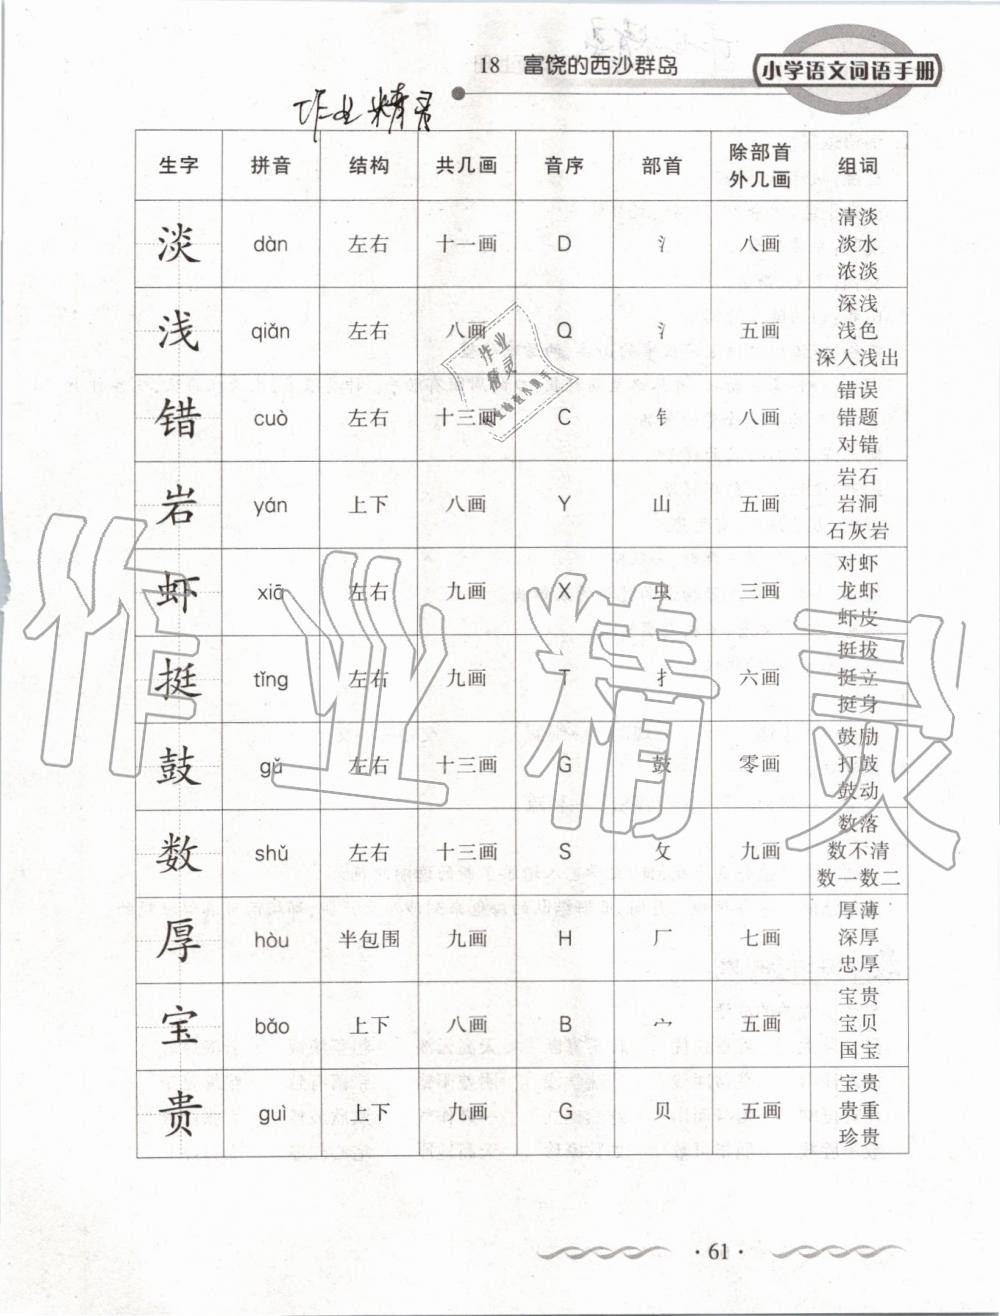 18 富饶的西沙群岛
小学语文词语手册
作业精灵
生字 拼音 结构 共几画 音序 部首 除部首外几画 组词
淡 dàn 左右 十一画 D 氵 八画 清淡 淡水 浓淡
浅 qiǎn 左右 八画 Q 氵 五画 深浅 浅色 深入浅出
错 cuò 左右 十三画 C 钅 八画 错误 错题 对错
岩 yán 上下 八画 Y 山 五画 岩石 岩洞 石灰岩
虾 xiā 左右 九画 X 虫 三画 对虾 龙虾 虾皮
挺 tǐng 左右 九画 T 扌 六画 挺拔 挺立 挺身
鼓 gǔ 左右 十三画 G 鼓 零画 鼓励 打鼓 鼓动
数 shǔ 左右 十三画 S 攵 九画 数落 数不清 数一数二
厚 hòu 半包围 九画 H 厂 七画 厚薄 深厚 忠厚
宝 bǎo 上下 八画 B 宀 五画 宝贵 宝贝 国宝
贵 guì 上下 九画 G 贝 五画 宝贵 贵重 珍贵
作业
精灵
作业精灵
·61·